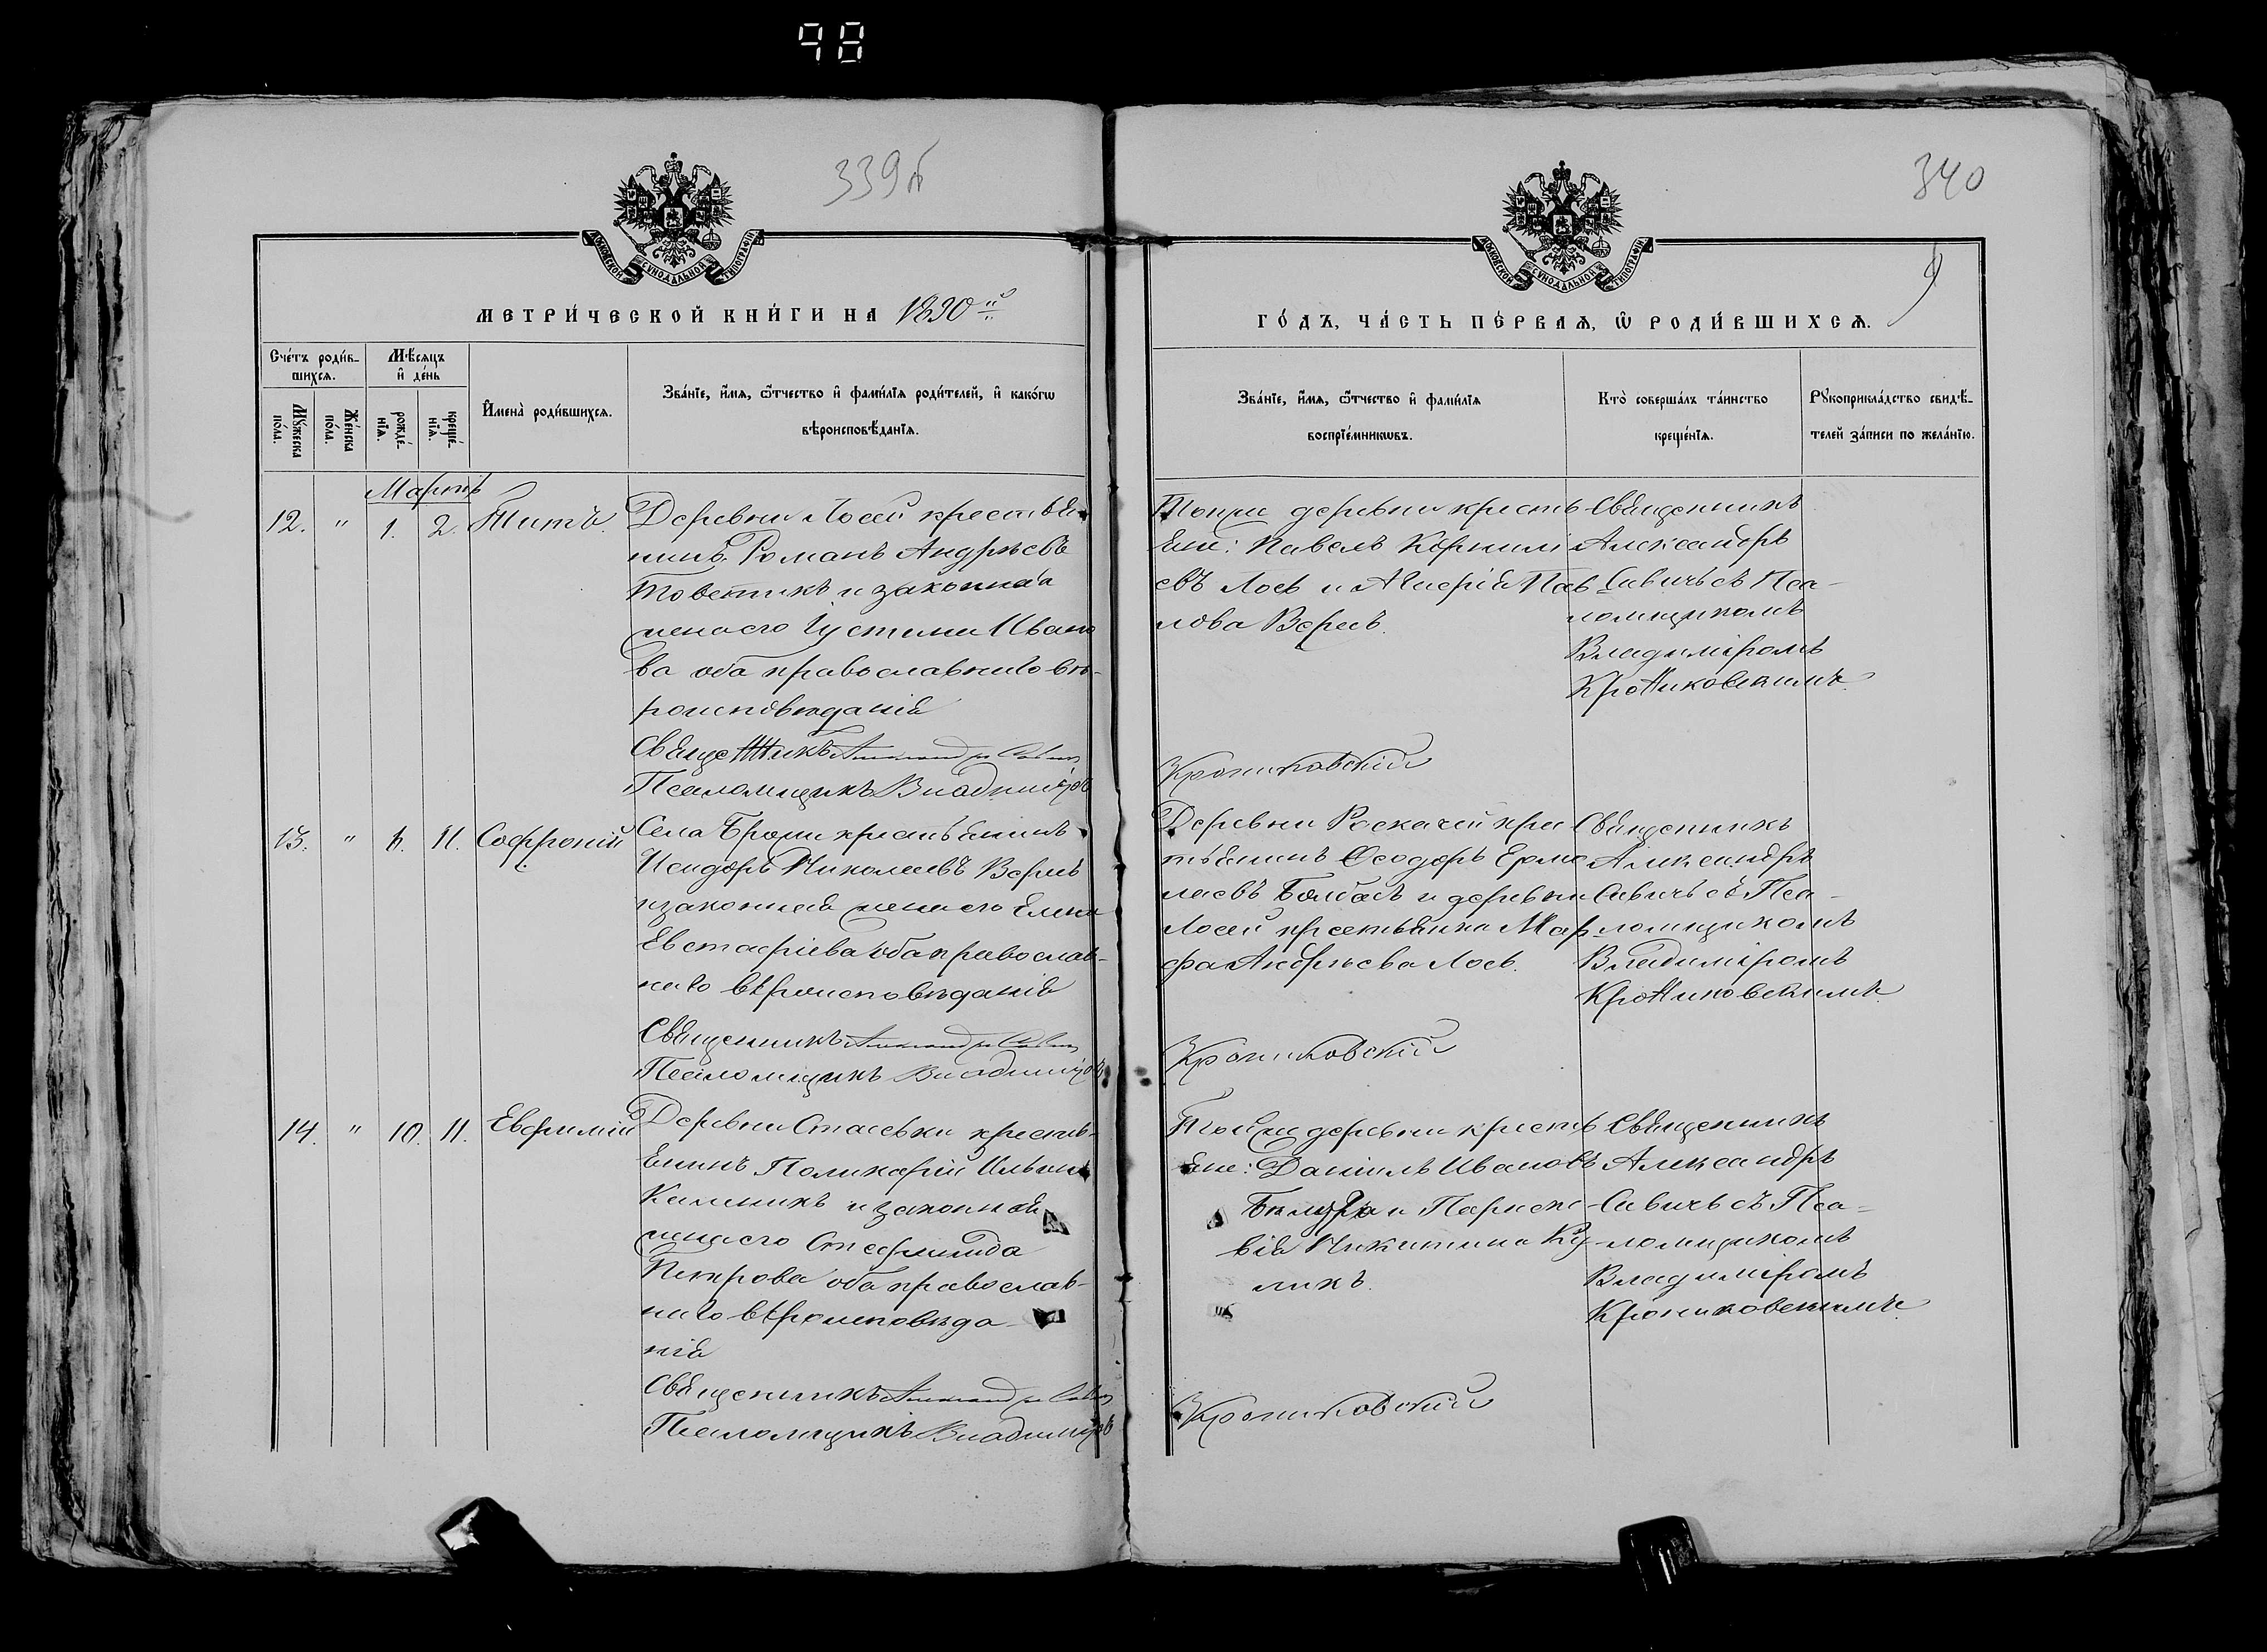 98
339б
340
9
МОСКОВСКОЙ СУНОДАЛЬНОЙ ТИПОГРАФІИ
МОСКОВСКОЙ СУНОДАЛЬНОЙ ТИПОГРАФІИ
МЕТРИ́ЧЕСКОЙ КНИ́ГИ НА 1890й
ГО́ДЪ, ЧА́СТЬ ПЕ́РВАѦ, Ѡ҆ РОДИ́ВШИХСѦ.
Сче́тъ роди́в-
шихсѧ.
Мꙋ́жеска по́ла.
Же́нска по́ла.
Мѣ́сѧцъ
и҆ де́нь
рожде́-
нїѧ.
креще́-
нїѧ.
И҆мена̀ роди́вшихсѧ.
Зва́нїе, и҆́мѧ, ѻ҆́тчество и҆ фами́лїѧ роди́телей, и҆ како́гѡ
вѣроисповѣ́данїѧ.
Зва́нїе, и҆́мѧ, ѻ҆́тчество и҆ фами́лїѧ
воспрїе́мникѡвъ.
Кто̀ соверша́лъ та́инство
креще́нїѧ.
Рꙋкоприкла́дство свидѣ́-
телей за́писи по жела́нїю.
Мартъ
12. " 1. 2. Титъ.
Деревни Лосей крестья
нинъ Романъ Андреевъ
и законная
жена его Іустина Ивано
ва оба православнаго вѣ-
роисповѣданія
Священникъ Александръ Савичъ
Псаломщикъ Владиміръ
Тойже деревни кресть
яне: Павелъ Корнилі
евъ Лось и Пав-
лова Вересъ.
Крониковскій
Священникъ
Александръ
Савичъ съ Пса-
ломщикомъ
Владиміромъ
Крониковскимъ.
13. " 6. 11. Софроній
Села крестьянинъ
Исидоръ Николаевъ Вересъ
и законная жена его Елена
Евстафіева оба православ-
наго вѣроисповѣданія
Священникъ Александръ Савичъ
Псаломщикъ Владиміръ
Деревни крес
тьянинъ Ѳеодоръ Ермо
лаевъ Болбасъ и деревни
Лосей крестьянка Мар-
фа Андреева Лось.
Крониковскій
Священникъ
Александръ
Савичъ съ Пса-
ломщикомъ
Владиміромъ
Крониковскимъ.
14. " 10. 11. Евфимій
Деревни Стаськи кресть-
янинъ Поликарпъ
и законная
жена его
Петрова оба православ-
наго вѣроисповѣда-
нія
Священникъ Александръ Савичъ
Псаломщикъ Владиміръ
Тойже деревни кресть
яне: Даніилъ Ивановъ
и Параске-
вія Никитина Ку-
ликъ.
Крониковскій
Священникъ
Александръ
Савичъ съ Пса-
ломщикомъ
Владиміромъ
Крониковскимъ.